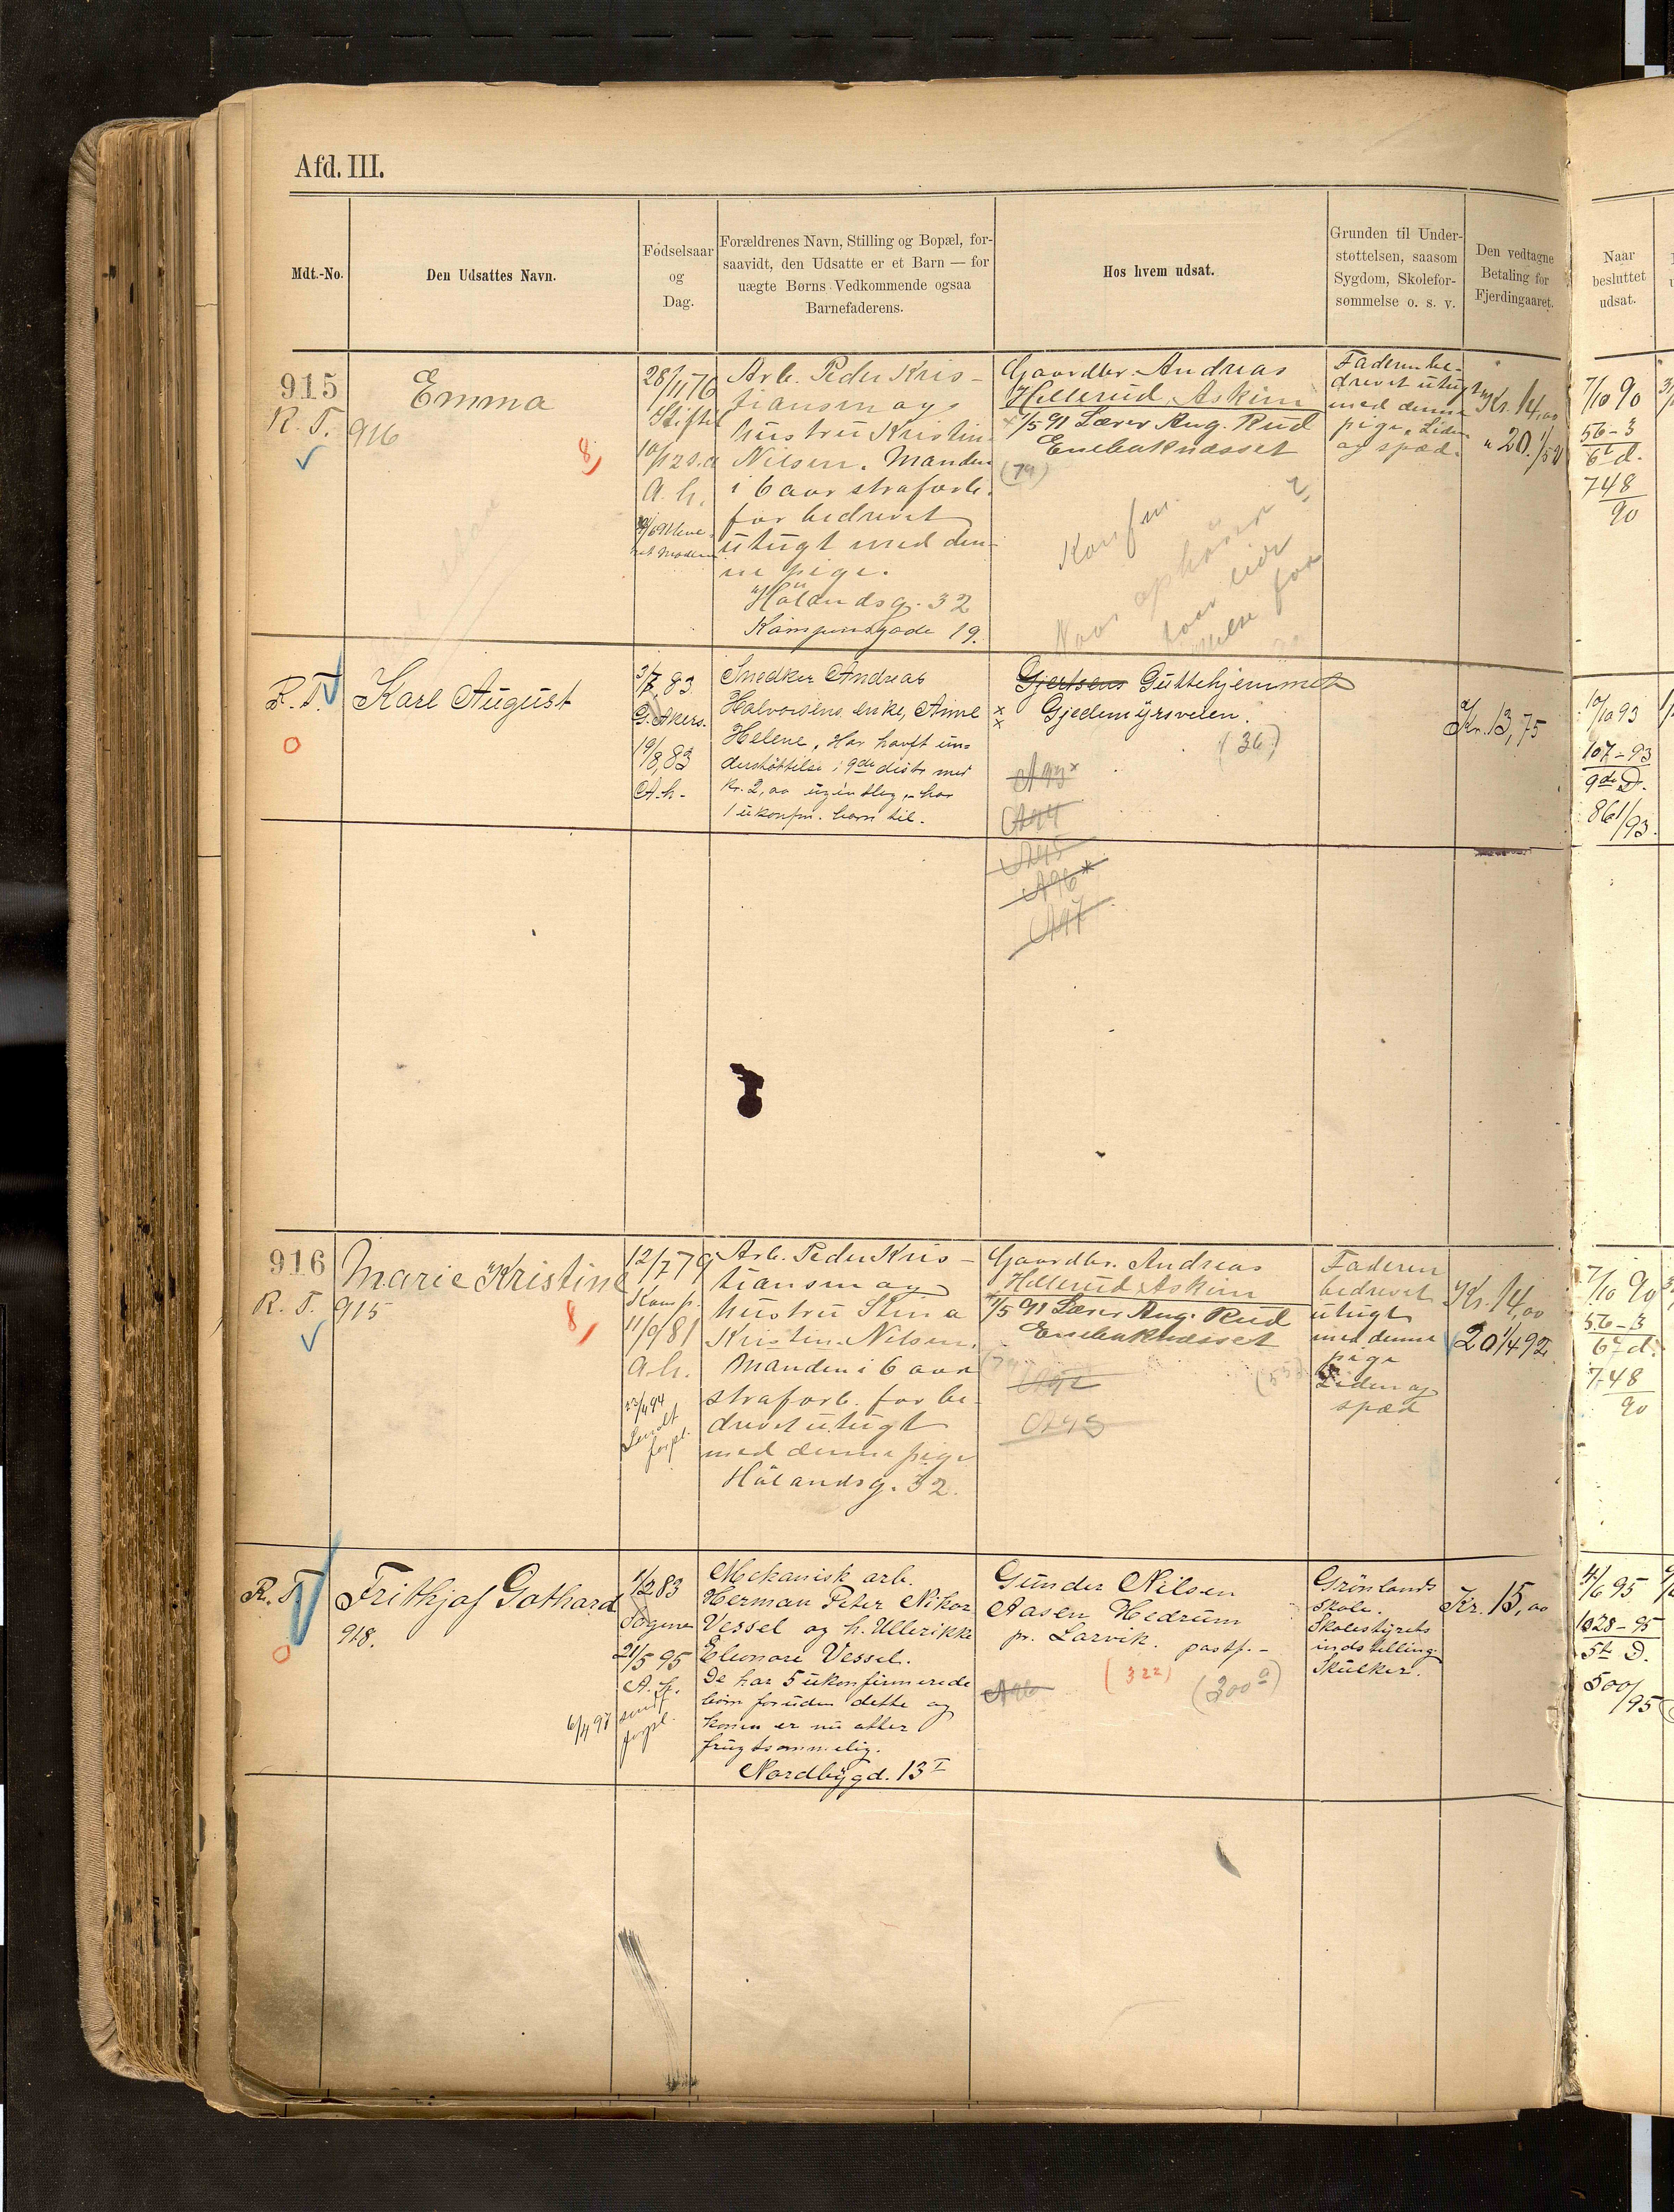 Afd. III.
Mdt.-No.
Den Udsattes Navn.
Fødselsaar
og
Dag.
Forældrenes Navn, Stilling og Bopæl, for-
saavidt, den Udsatte er et Barn — for
uægte Børns Vedkommende ogsaa
Barnefaderens.
Hos hvem udsat.
Grunden til Under-
støttelsen, saasom
Sygdom, Skolefor-
sømmelse o. s. v.
Den vedtagne
Betaling for
Fjerdingaaret.
Naar
besluttet
udsat.
915
R. T.
Emma
916
8
28/11 76
10/12 s.a
A. h.
Arb. Peder Kris-
tiansen og
hustru Kristine
Nilsen. Manden
i 6 aar strafarb.
for bedrevet
utugt med den-
ne pige.
Hölandsg. 32
Kampensgade 19.
Gaardbr. Andreas
Hellerud, Askim
1/5 91 Lærer Aug. Rud
Enebaknæsset
(79)
Konfm.
Faderen be-
drevet utugt
med denne
pige. Liden
og spæd.
Kr. 14,00
" 20.
7/10 90
56-3
6te d.
748
90
R. T.
Karl August
3/7 83
G. Akers.
19/8 83
A. h.
Snedker Andreas
Halvorsens enke, Anne
Helene. Har havft un-
derstöttelse i 9de distr. med
Kr. 2,00 ugentlig, - har
1 ukonfm. barn til.
Gjertsens Guttehjemmet
Gjedemyrsveien.
(36)
A93
A94
A95
A96
A97
Kr. 13,75
10/10 93
107-93
9de D.
861/93.
916
R. T.
Marie Kristine
915
8
12/7 79
Kamp.
11/9 81
A. h.
23/4 94
Sendt
forpl.
Arb. Peder Kris-
tiansen og
hustru Stina
Kristine Nilsen.
Manden i 6 aar
strafarb. for be-
drevet utugt
med denne pige
Hölandsg. 32.
Gaardbr. Andreas
Hellerud, Askim
1/5 91 Lærer Aug. Rud
Enebaknæsset
A92
A93
Faderen
bedrevet
utugt
med denne
pige
Liden og
spæd
Kr. 14,00
20 1/4 92
7/10 90
56-3
6te d.
748
90
R. T.
Frithjof Gothard
918.
11/2 83
21/5 95
A. h.
6/4 97
send
forpl.
Mekanisk arb.
Herman Peter Nikor
Vessel og h. Ullerikke
Eleonore Vessel.
De har 5 ukonfirmerede
börn foruden dette og
konen er nu atter
frugtsommelig.
Nordbygd. 13 I
Gunder Nilsen
Aasen Hedrum
pr. Larvik. postf. -
(322)
(300a)
A96
Grönlands
skole.
Skolestyrets
indstilling.
Skulker.
Kr. 15,00
1028-95
5te D.
500/95